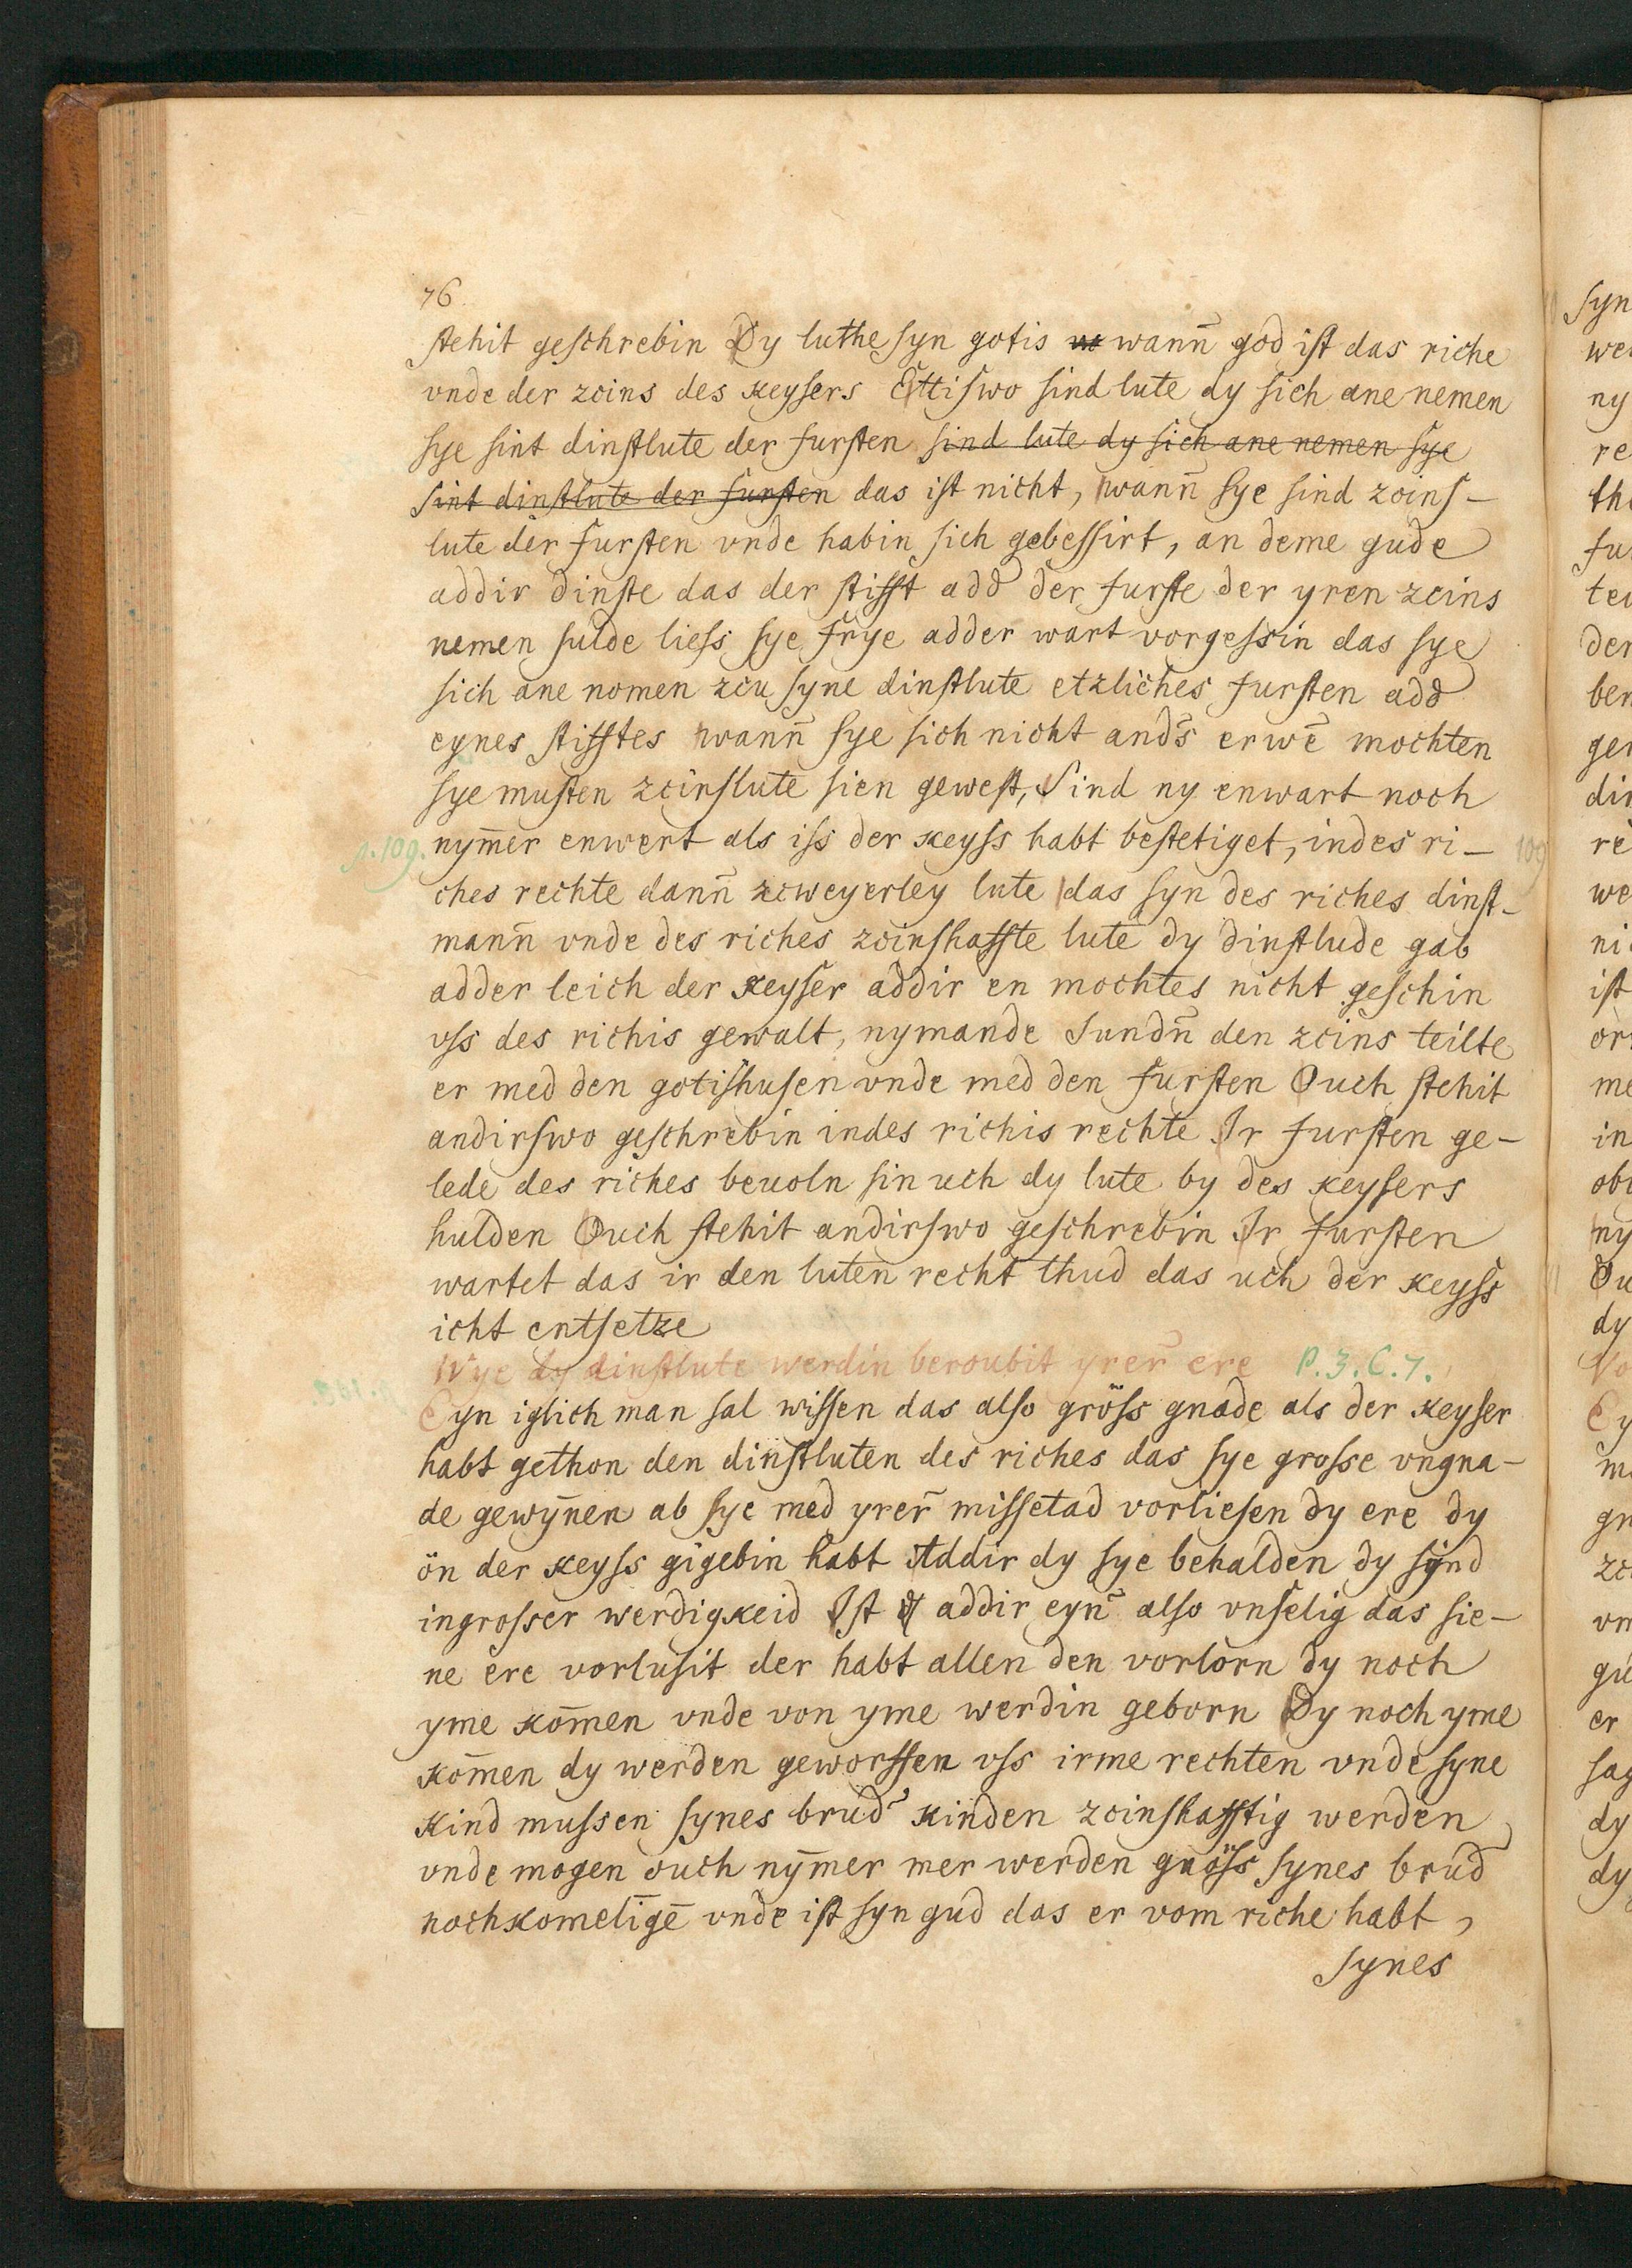 76.
stehit geschrebin Dy luthe syn gotis wannn̄ god ist das riche
vnde der zcins des keysers Ettiswo sind lute dy sich ane nemen
sye sint dinstlute der fursten sind lute dy sich ane nemen sye
sint dinstlute der fursten das ist nicht, wann̄ sye sind zcins-
lute der fursten vnde habin sich gebessirt, an deme gude
addir dinste das der stifft add der furste der yren zcins
nemen sulde liess sye frye adder wart vorgessin das sye
sich ane nomen zcu syne dinstlute etzliches fursten add
eynes stifftes wann̄ sye sich nicht and̄s erwē mochten
sye musten zcinslute sien gewest, Sind ny enwart noch
p. 109. nym̄er enwert als iss der keyss habt bestetiget, indes ri-
ches rechte dann̄ zcweyerley lute das syn des riches dinst-
mann̄ vnde des riches zcinshaffte lute dy dinstlude gab
adder leich der keyser addir en mochtes nicht geschin
vss des richis gewalt, nymande Sundn̄ den zcins teilte
er med den gotishusen vnde med den fursten Ouch stehit
andirswo geschrebin indes richis rechte Ir fursten ge-
lede des riches beuoln sin uch dy lute by des keysers
hulden Ouch stehit andirswo geschrebin Ir fursten
wartet das ir den luten recht thud das uch der keyss
icht entsetze
Wye dy dinstlute werdin beroubit yrer̄ ere P. 3. C. 7.
Eyn iglich man sal wissen das also gröss gnade als der keyser
habt gethon den dinstluten des riches das sye grosse vngna-
de gewȳnen ab sye med yrer̄ missetad vorliesen dy ere dy
ön der keyss gigebin habt Addir dy sye behalden dy sÿnd
ingrosser werdigkeid Ist addir eyn̄ also vnselig das sie-
ne ere vorlusit der habt allen den vorlorn dy noch
yme kom̄en vnde von yme werdin geborn Dy noch yme
kom̄en dy werden geworffen vss irme rechten vnde syne
kind mussen synes brud kinden zcinshafftig werden
vnde mogen ouch nȳmer mer werden gnöss synes brud
nochkomeligē vnde ist syn gud das er vom riche habt,
synes